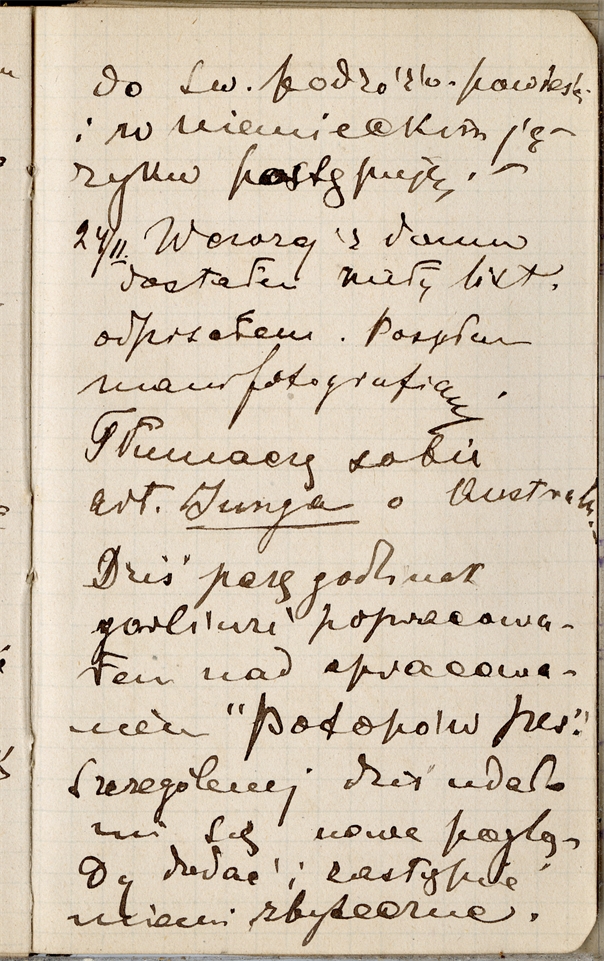 do św. podróżo-powieśc.
i w niemieckim ję-
zyku postępuję. —
24/II. Wczoraj z domu
dostałem mały list.
odpisałem. Posyłam
nam fotografiamy.
Tłumaczę sobie
art. Junga o Austral.
Dziś parę godzinek
gorliwie popracowa-
łem nad opracowa-
niem "Potopów pres."
Szczególniej dziś udało
mi się nowe poglą-
dy dodać i zastąpić
niemi zbyteczne.